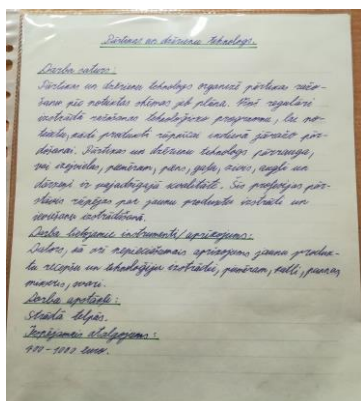 Pārtikas un dzērienu tehnologs.
Darba saturs:
Pārtikas un dzērienu tehnologs organizē pārtikas ražo-
šanu pēc noteiktas shēmas jeb plāna. Viņš regulāri
izstrādā ražošanas tehnoloģisko programmu, kas no-
teikta, kādi produkti rūpnīcai ikdienā jāražo pār-
došanai. Pārtikas un dzērienu tehnologs pārrauga,
vai izejvielas, piemēram, piens, gaļa, zivis, augļi un
dārzeņi ir vajadzīgajā kvalitātē. Šīs profesijas pār-
stāvis rūpējas par jaunu produktu izstrādi un
ieviešanu
Darba lietojamie instrumenti/aprīkojums:
Dators, kā arī nepieciešamais aprīkojums jaunu produk-
tu recepšu un tehnoloģiju izstrādei, piemēram, katli, pannas,
mikseris, svari.
Darba apstākļi:
Strādā telpās.
Iespējamais atalgojums:
900-1000 euro.